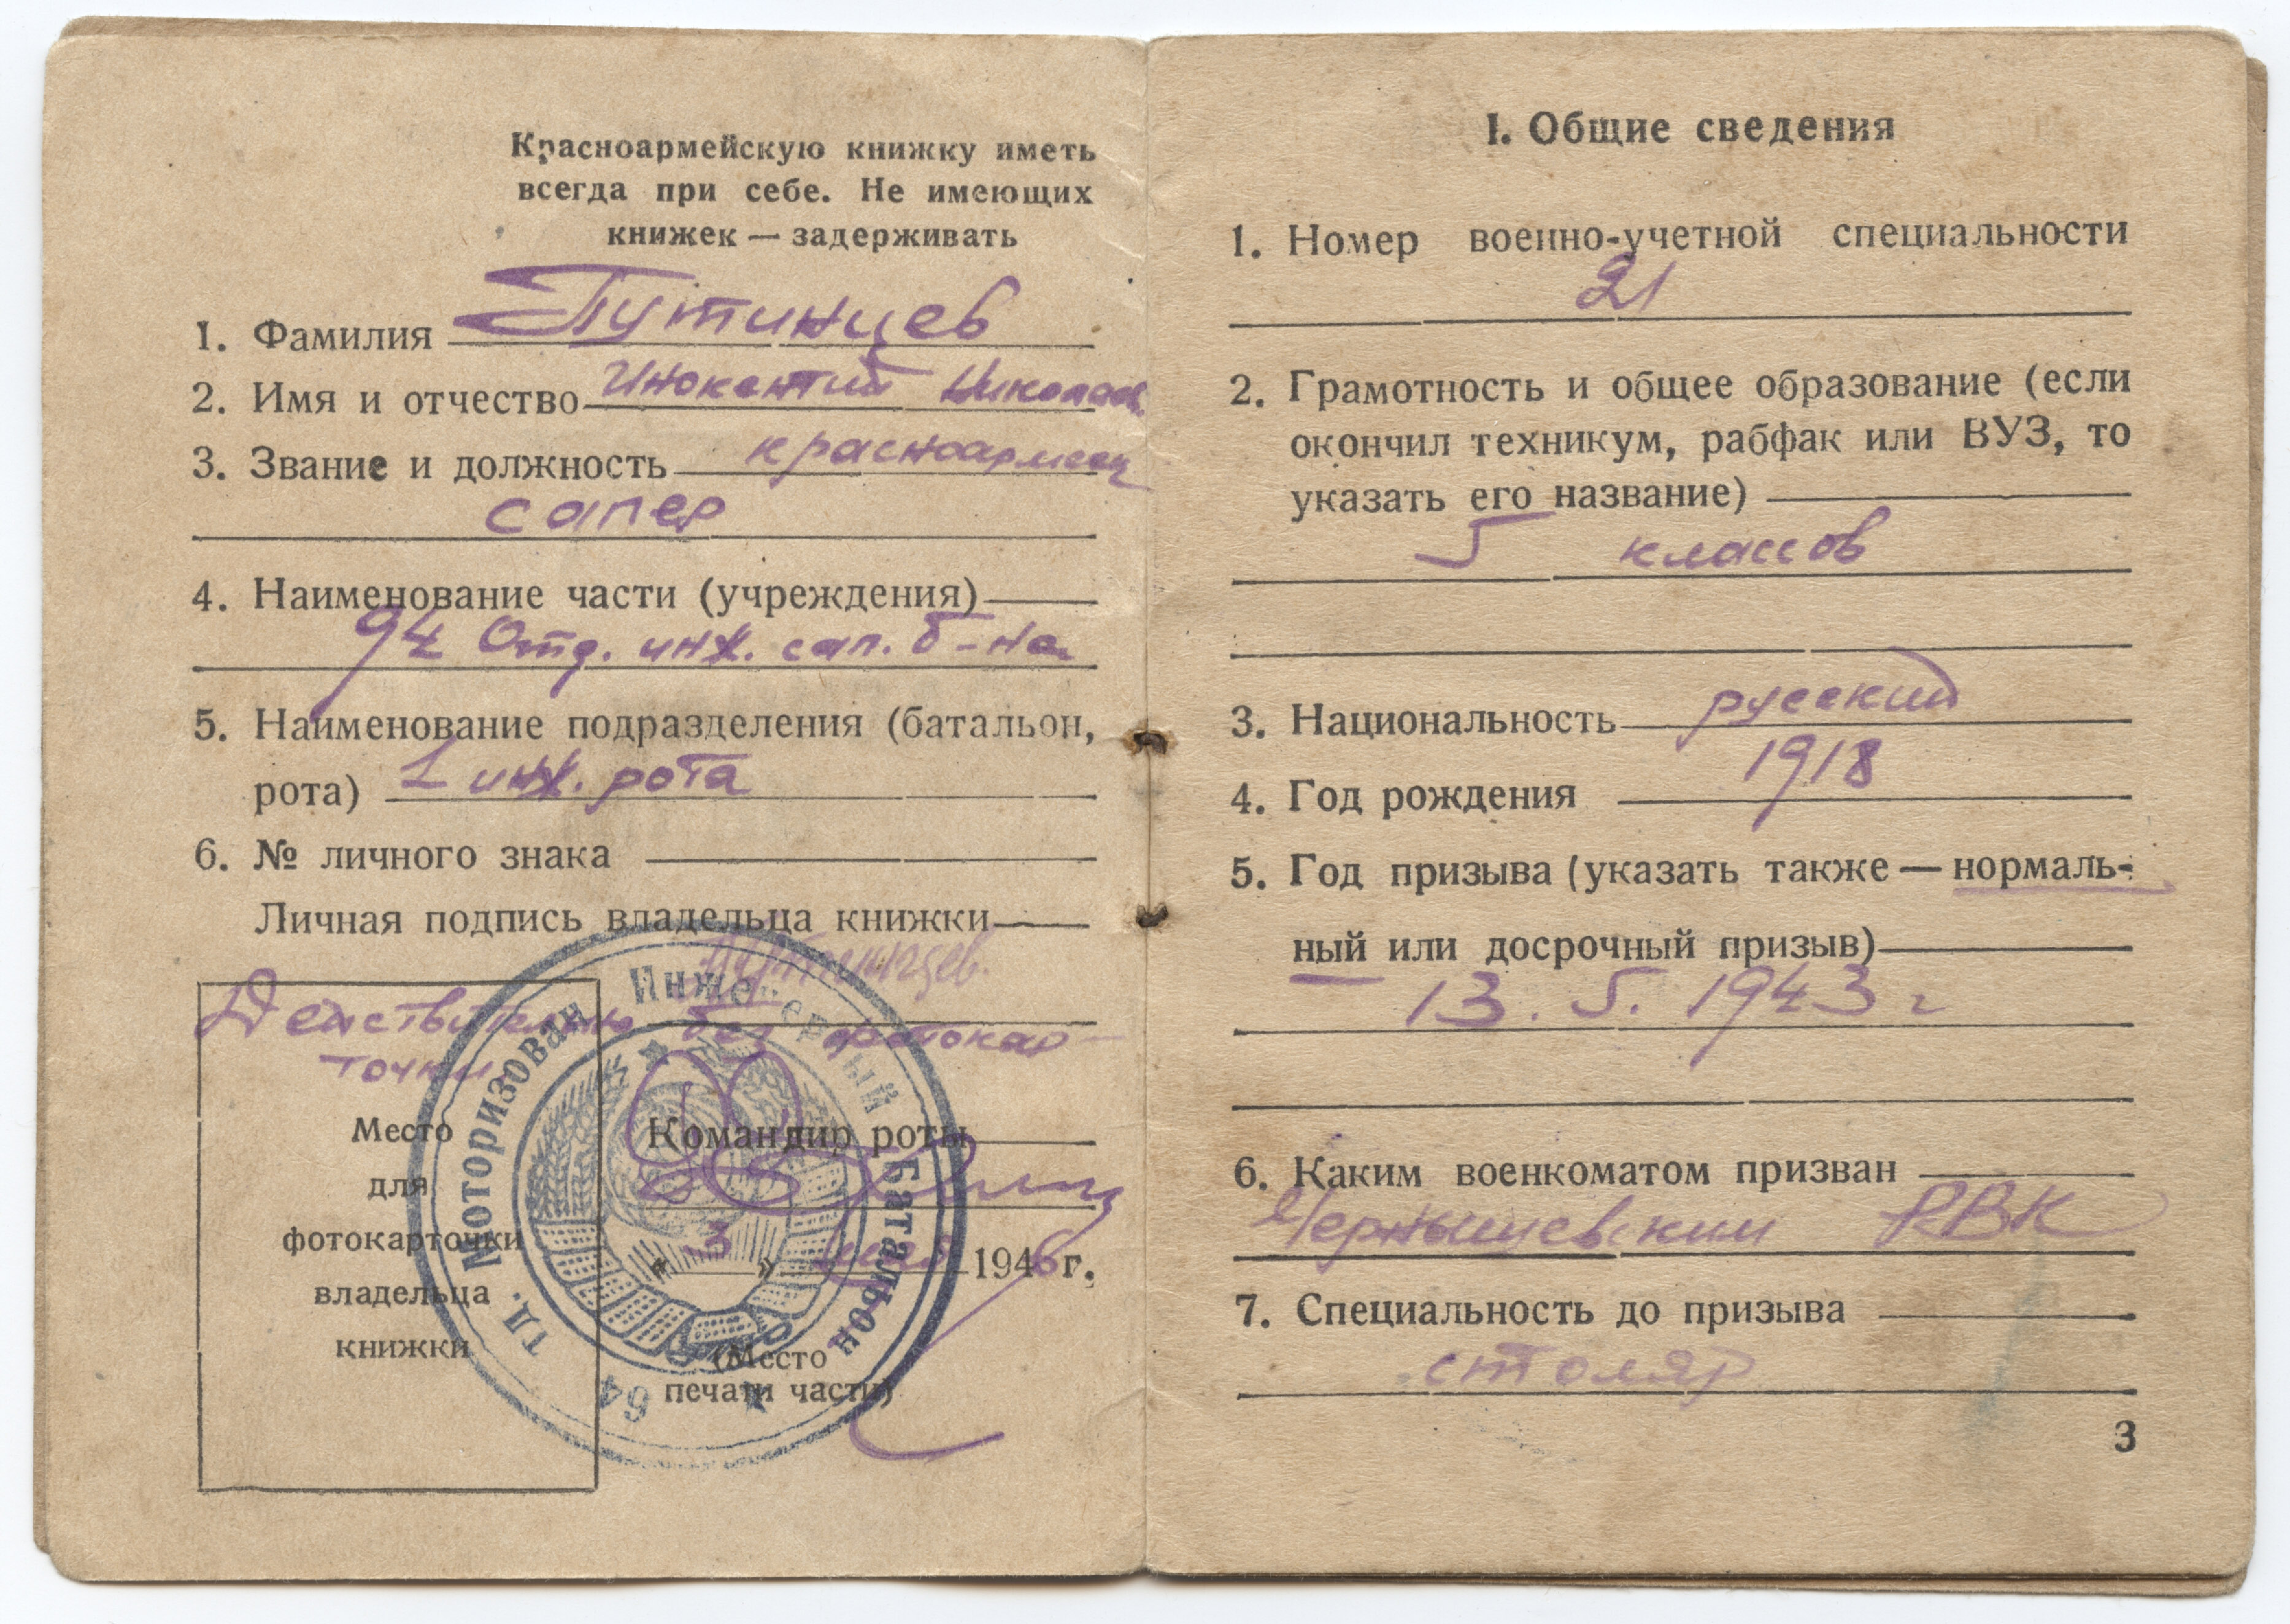 Красноармейскую книжку иметь
всегда при себе. Не имеющих
книжек — задерживать
1. Фамилия Путинцев
2. Имя и отчество Инокентий Николаев.
3. Звание и должность красноармеец
сапер
4. Наименование части (учреждения)
94 Отд. инж. сап. б-на
5. Наименование подразделения (батальон,
рота) 1 инж. рота
6. № личного знака
Личная подпись владельца книжки
Путинцев.
Действительно без фотокар-
точки
Место
для
фотокарточки
владельца
книжки
Командир роты
"3" мая 1946 г.
(Место
печати части)
тд. Моторизован Инженерный Батальон
64
I. Общие сведения
1. Номер военно-учетной специальности
21
2. Грамотность и общее образование (если
окончил техникум, рабфак или ВУЗ, то
указать его название)
5 классов
3. Национальность русский
4. Год рождения 1918
5. Год призыва (указать также — нормаль-
ный или досрочный призыв)
13. 5. 1943 г
6. Каким военкоматом призван
Чернышевским РВК
7. Специальность до призыва
столяр
3